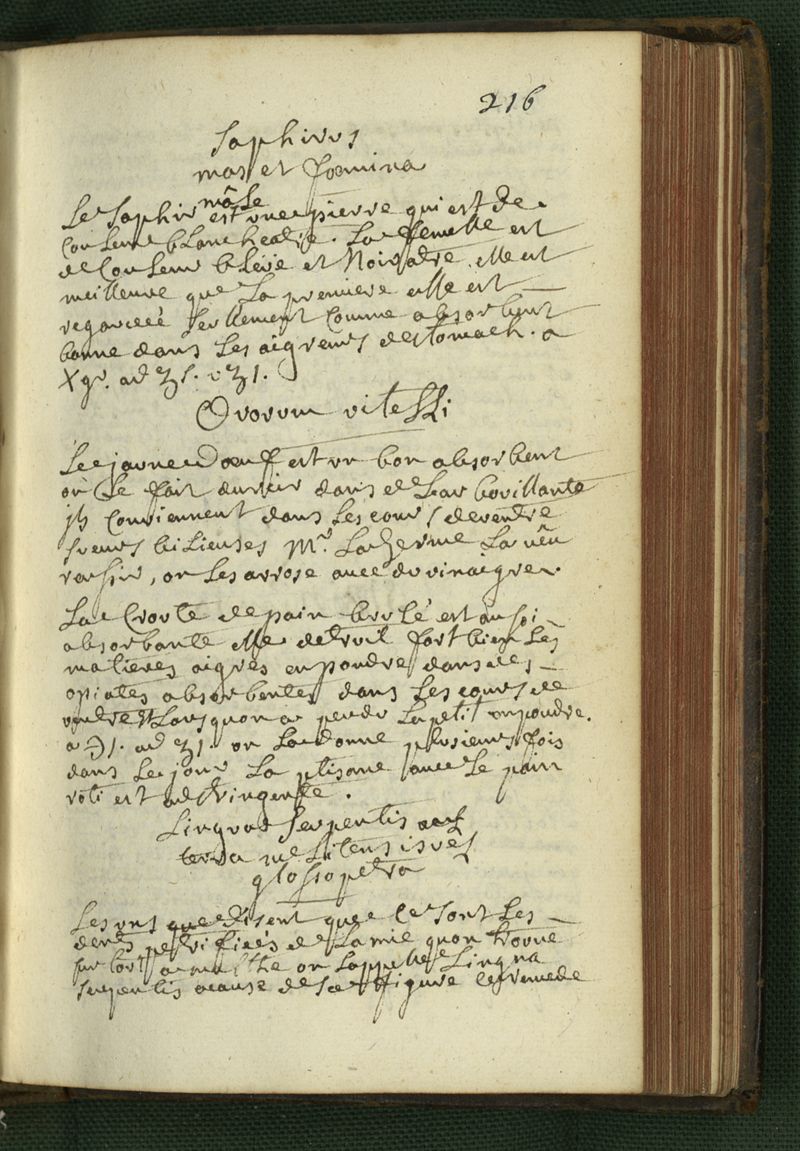 216
Saphirus
mas et foemina
mâle
Le Saphir est une pierre qui est de
Couleur blancheatre. La femelle est
de Couleur bleüe et Noiratre elle est
meilleure que La premiere elle est
regardeé seullement Comme absorbent
bonne dans Les aigreurs destomach. a
X gr. ad ʒ1.
Ovorum vitelli
Le jaune d oeuf est un bon absorbent
on Le fait durcir dans de Leau bouillante
ils Conviennent dans Les cours de ventre
bilieuses Mr. La
, on Les arrose avec du vinaigre.
La Croute de pain brulé est aussi
absorbante elle detruit fort bien Les
matieres aigres en poudre dans des
opiates absorbentes dans Les cours de
ventre et Lorsquon a perdu Lapetit en poudre.
a ℈1. ad ʒ1. on La donne plusieurs fois
dans Le jour La ptisane avec Le pain
roti est adstringente.
Linguae Serpentis
terra melitensis
glossopetra
Les uns disent que Ce Sont Les
dents petrifieés de Lamie quon trouve
a malthe on Lappelle Lingua
serpentis acause de Sa figure Ce remede